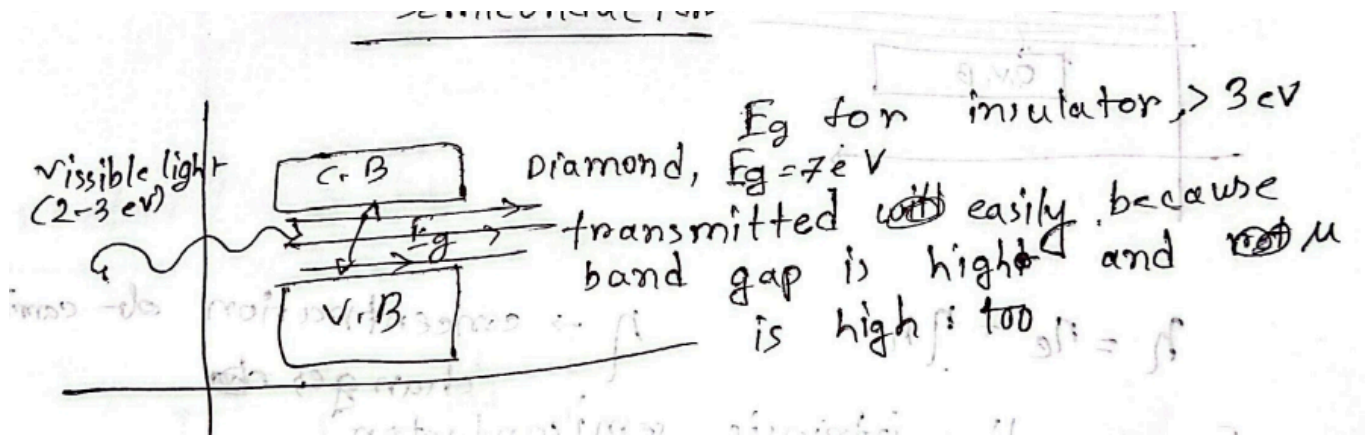 Eg for insulator, > 3 eV
Vissible light
(2-3 eV)
C.B
Diamond, Eg = 7 eV
transmitted easily because
Eg
band gap is high and μ
V.B
is high too